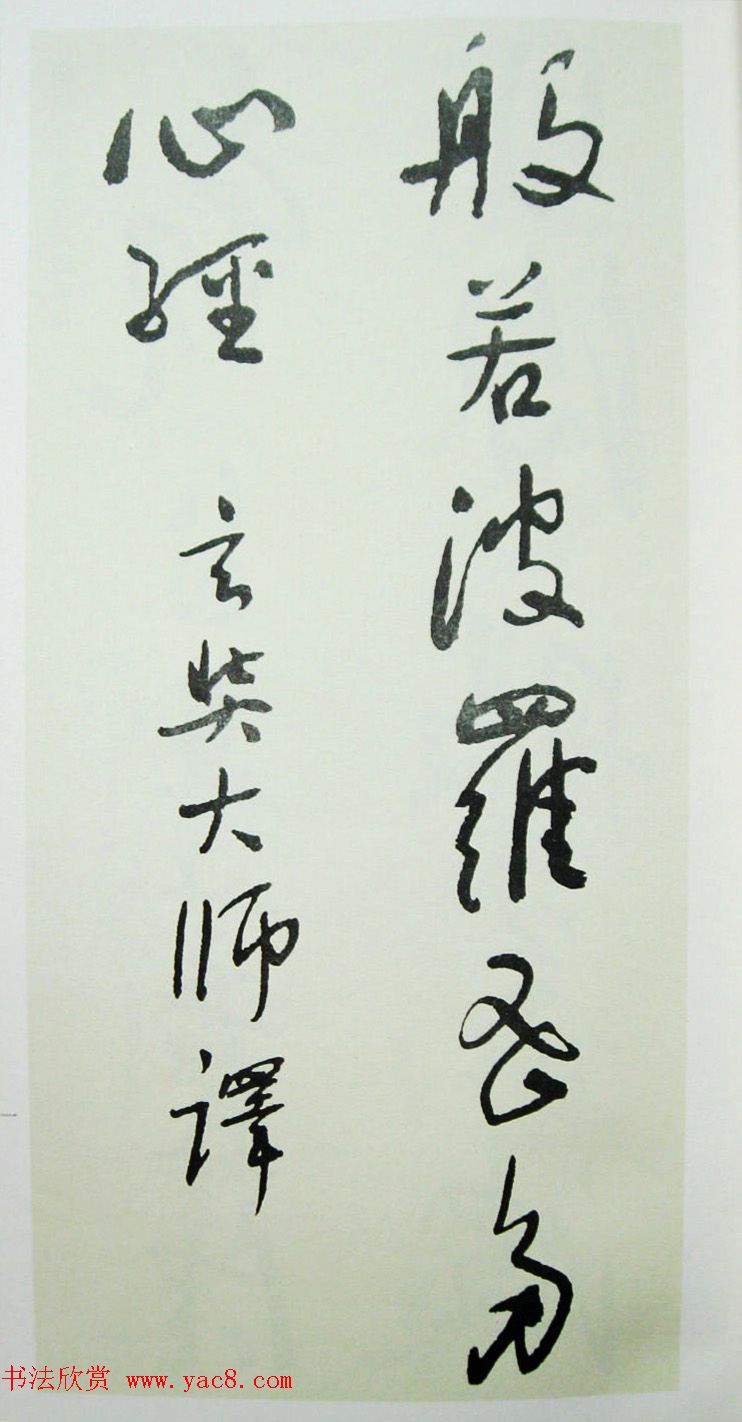 般若波羅蜜多
心經 玄奘大師譯
书法欣赏 www.yac8.com